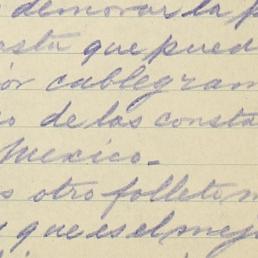 demorar la p
asta que pued
or cablegram
o de las consta
Mexico.
s otro folleto m
y que es el mejo